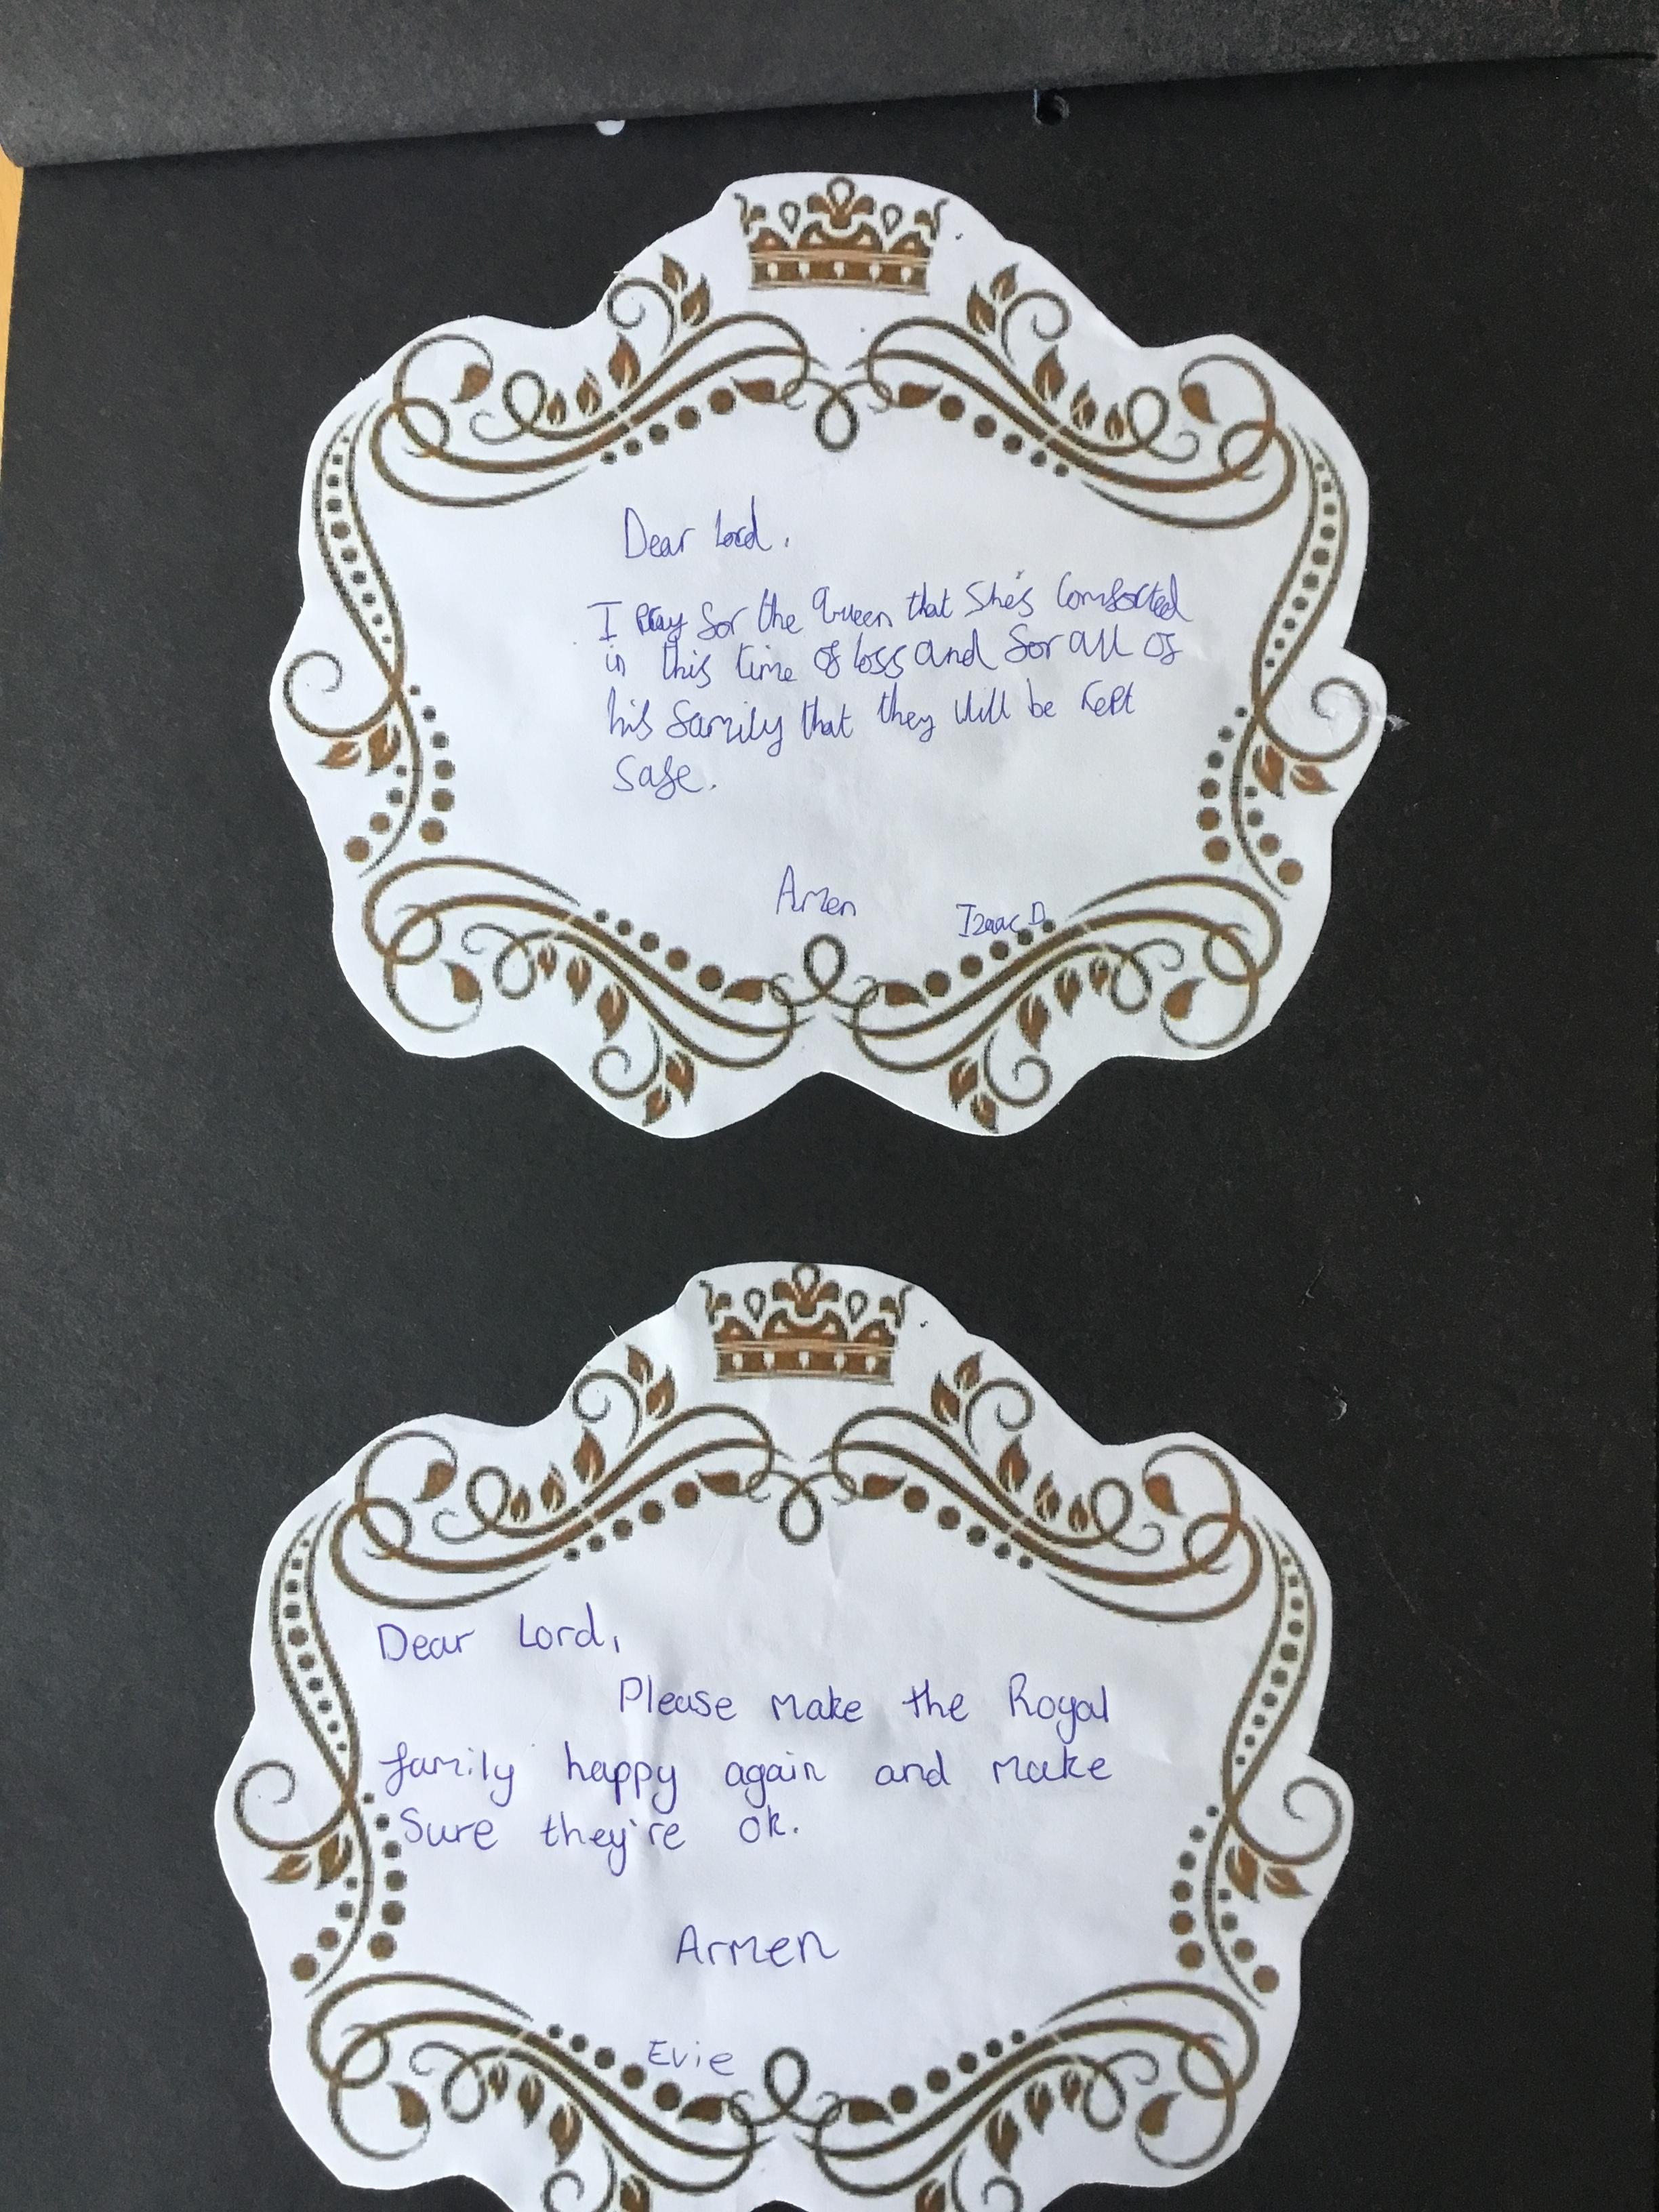 Dear Lord.
I Pray for the Queen that She's Comforted
in this time of loss and for all of
his family that they will be kept
Safe.
Amen
Izaac D
Dear Lord,
Please make the Royal
family happy again and make
Sure they're ok.
Armen
Evie